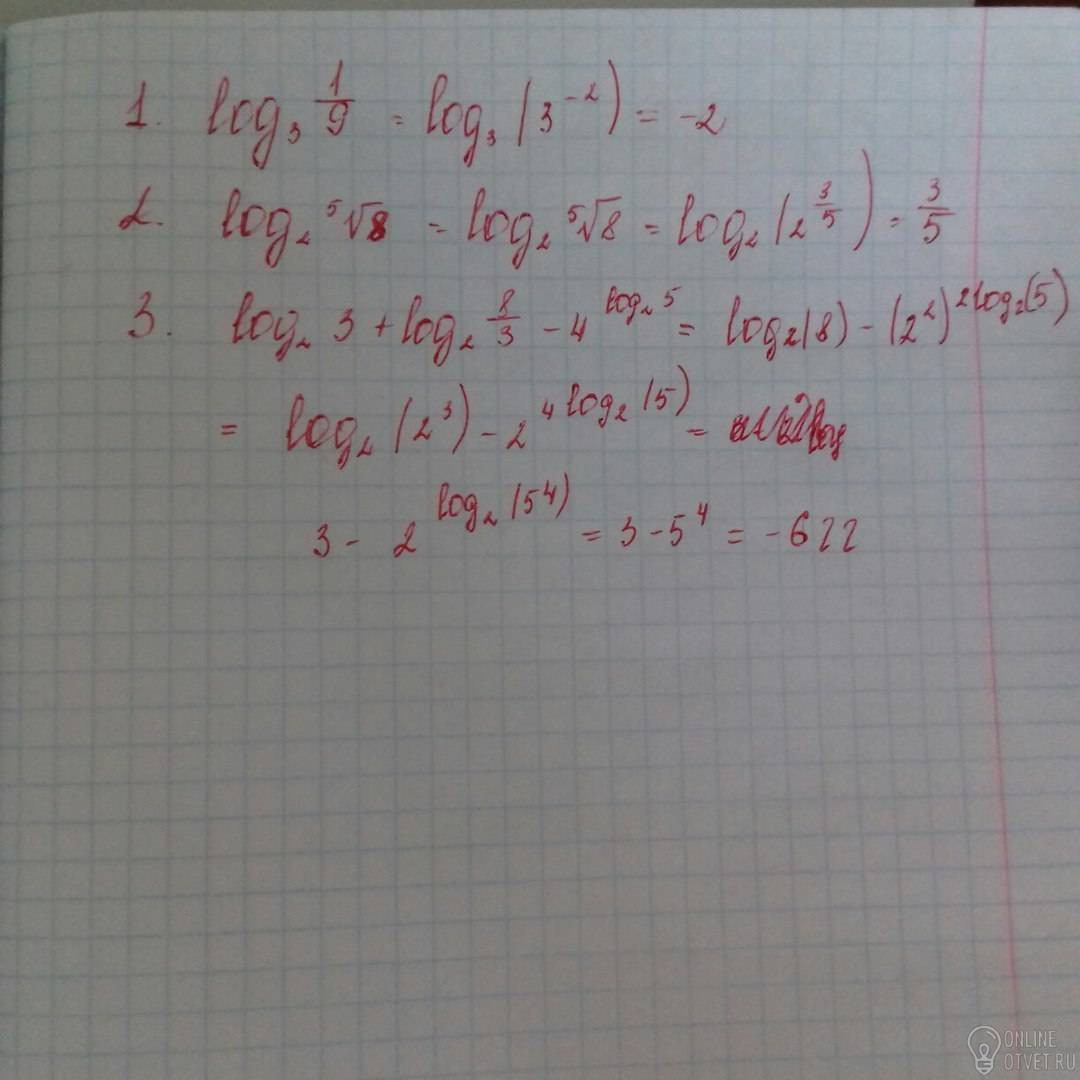 1. log₃ 1/9 = log₃ (3⁻²) = -2
2. log₂ ⁵√8 = log₂ ⁵√8 = log₂ (2^(3/5)) = 3/5
3. log₂ 3 + log₂ 8/3 - 4^(log₂ 5) = log₂(8) - (2²)^(2log₂(5))
= log₂ (2³) - 2^(4 log₂ (5)) =
3 - 2^(log₂ (5⁴)) = 3 - 5⁴ = -622
ONLINE
OTVET.RU